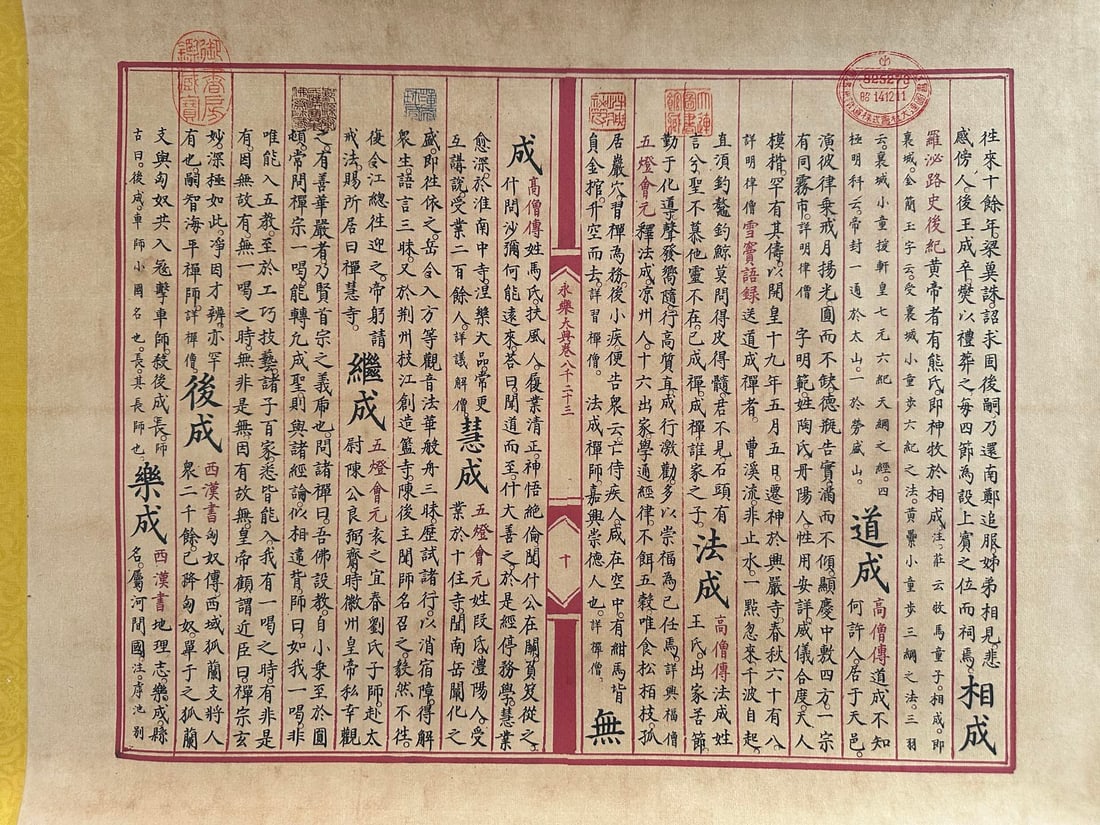 徃來十餘年梁冀誅詔求固後嗣乃還南鄭追服姊弟相見悲
感傍人後王成卒燮以禮葬之每四節為設上賓之位而祠焉 相成
羅泌路史後紀 黄帝者有熊氏即神牧於相成注莊云牧馬童子相成即
襄城金簡玉字云受襄城小童步六紀之法黄 小童步三綱之法三羽
云襄城小童援軒皇七元六紀天綱之經四
極明科云帝封一通於太山一於勞盛山 道成 高僧傳道成不知何許人居于天邑
演彼律乗戒月揚光圓而不缺德瓶告實滿而不傾顯慶中敷四方一宗
有同霧市詳明律僧 字明範姓陶氏丹陽人性用安詳威儀合度天人
模楷罕有其儔以開皇十九年五月五日遷神於興嚴寺春秋六十有八
詳明律僧 雪竇語録 送道成禪者 曹溪流非止水一點忽來千波自起
直須釣鰲釣鯨莫問得皮得髓君不見石頭有
言兮聖不慕他靈不在已成禪成禪誰家之子 法成 高僧傳法成姓王氏出家苦節
勤于化導聲發嚮隨行高質直成行激勸多以崇福為己任焉詳興福僧
五燈會元 釋法成凉州人十六出家學通經律不餌五穀唯食松栢枝孤
居巖穴習禪為務後小疾便告衆云亡侍疾人咸在空中有紺馬皆
負金棺升空而去詳習禪僧 法成禪師嘉興崇德人也詳禪僧 無
永樂大典卷八千二十三
十
成 高僧傳 姓馬氏扶風人履業清正神悟絶倫聞什公在關負笈從之
什問沙彌何能遠來荅曰聞道而至什大善之於是經停務學慧業
愈深於淮南中寺涅槃大品常更
互講說受業二百餘人詳議解僧 慧成 五燈會元 姓段氏澧陽人受業於十住寺聞南岳闡化之
盛即徃依之岳令入方等觀音法華般舟三昧歴試諸行以消宿障得解
衆生語言三昧又於荆州枝江創造籃寺陳後主聞師名召之毅然不徃
後令江總徃迎之帝躬請
戒法賜所居曰禪慧寺 繼成 五燈會元 袁之宜春劉氏子師赴太尉陳公良弼齋時徽州皇帝私幸觀
之有善華嚴者乃賢首宗之義虎也問諸禪曰吾佛設教自小乗至於圓
頓常問禪宗一喝能轉凡成聖則與諸經論似相違背師曰如我一喝非
唯能入五教至於工巧技藝諸子百家悉皆能入我有一喝之時有非是
有因無故有無一喝之時無非是無因有故無皇帝顧謂近臣曰禪宗玄
妙深極如此淨因才辨亦罕
有也嗣智海平禪師詳禪僧 後成 西漢書 匈奴傳西域狐蘭支將人衆二千餘己降匈奴單于之狐蘭
支與匈奴共入冦擊車師殺後成長師
古曰後成車師小國名也長其長師也 樂成 西漢書 地理志樂成縣名屬河間國注虖池别